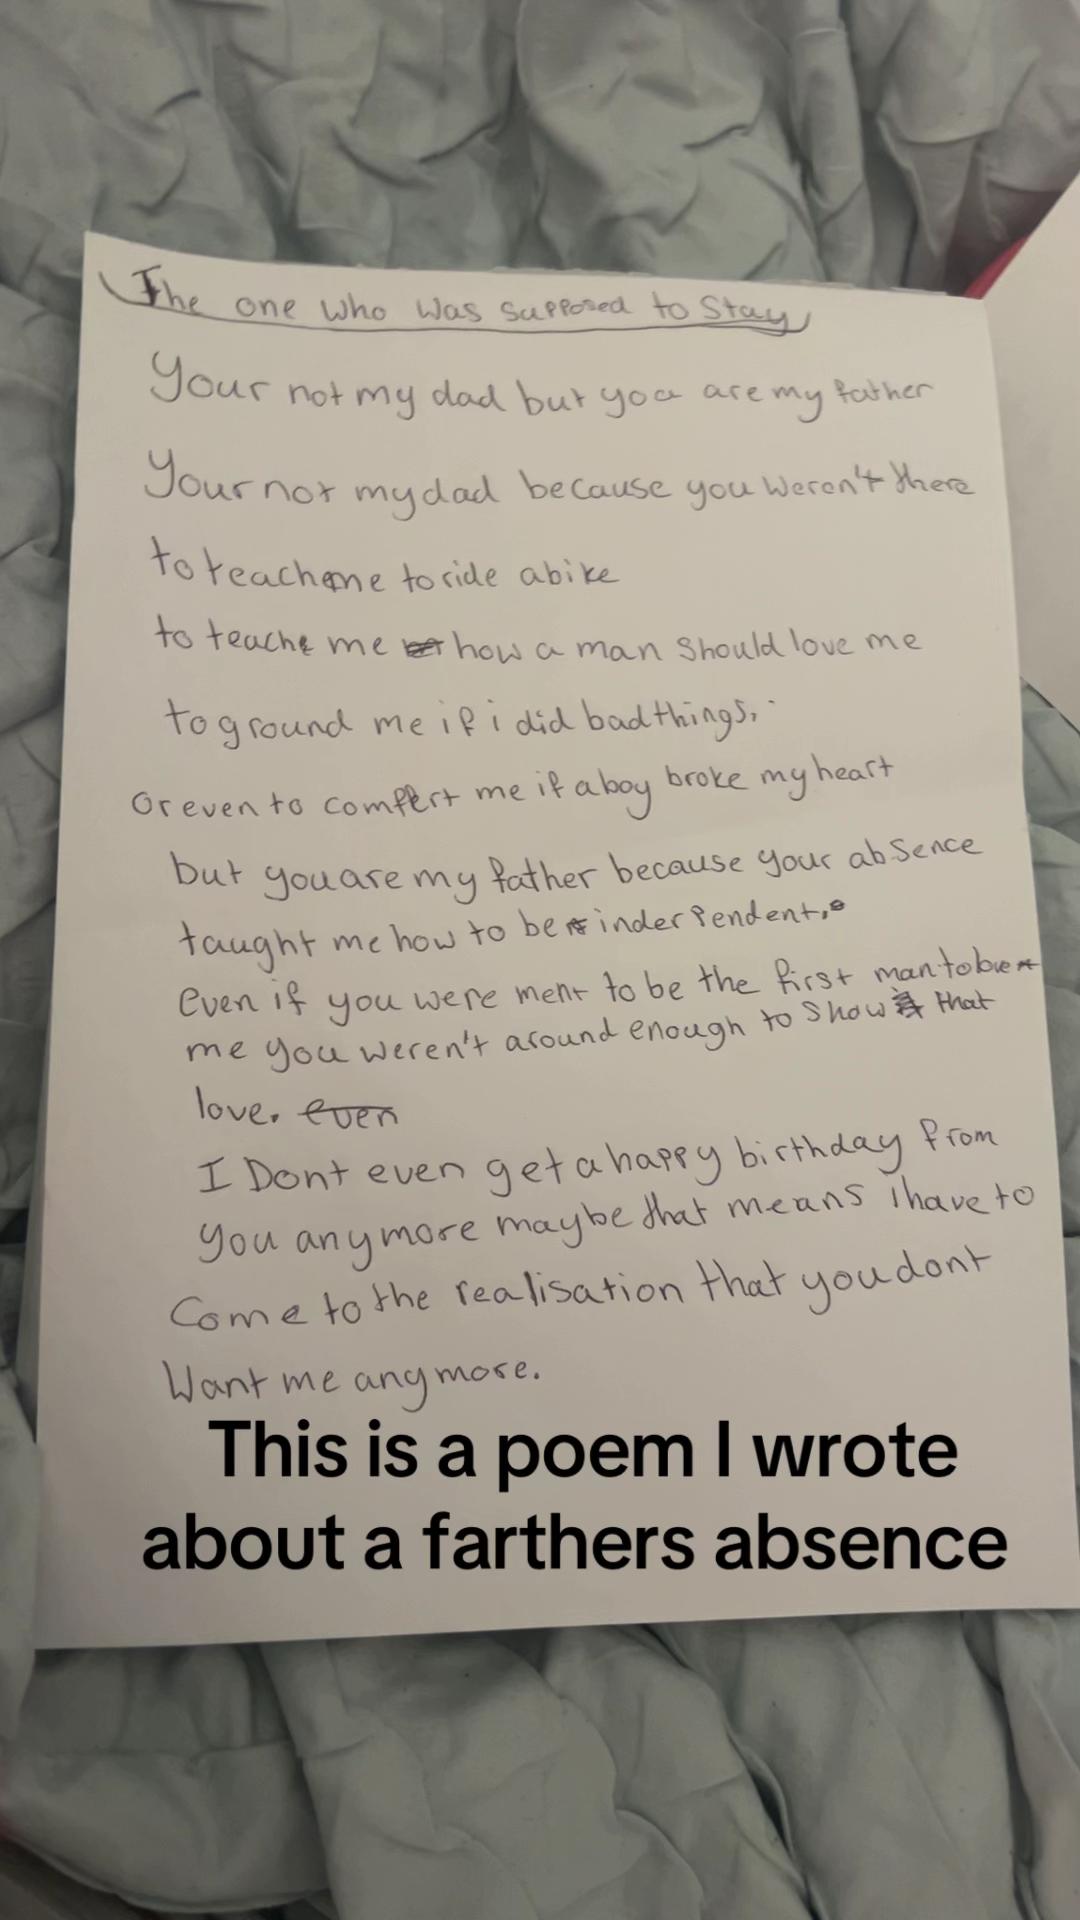 The one who was supposed to stay
Your not my dad but you are my father
Your not my dad because you weren't there
to teach me to ride a bike
to teach me how a man should love me
to ground me if i did bad things,
Or even to comfort me if a boy broke my heart
but you are my father because your absence
taught me how to be inderpendent,
even if you were ment to be the first man to love
me you weren't around enough to show that
love. even
I Dont even get a happy birthday from
you anymore maybe that means i have to
Come to the realisation that you dont
Want me anymore.
This is a poem I wrote
about a farthers absence